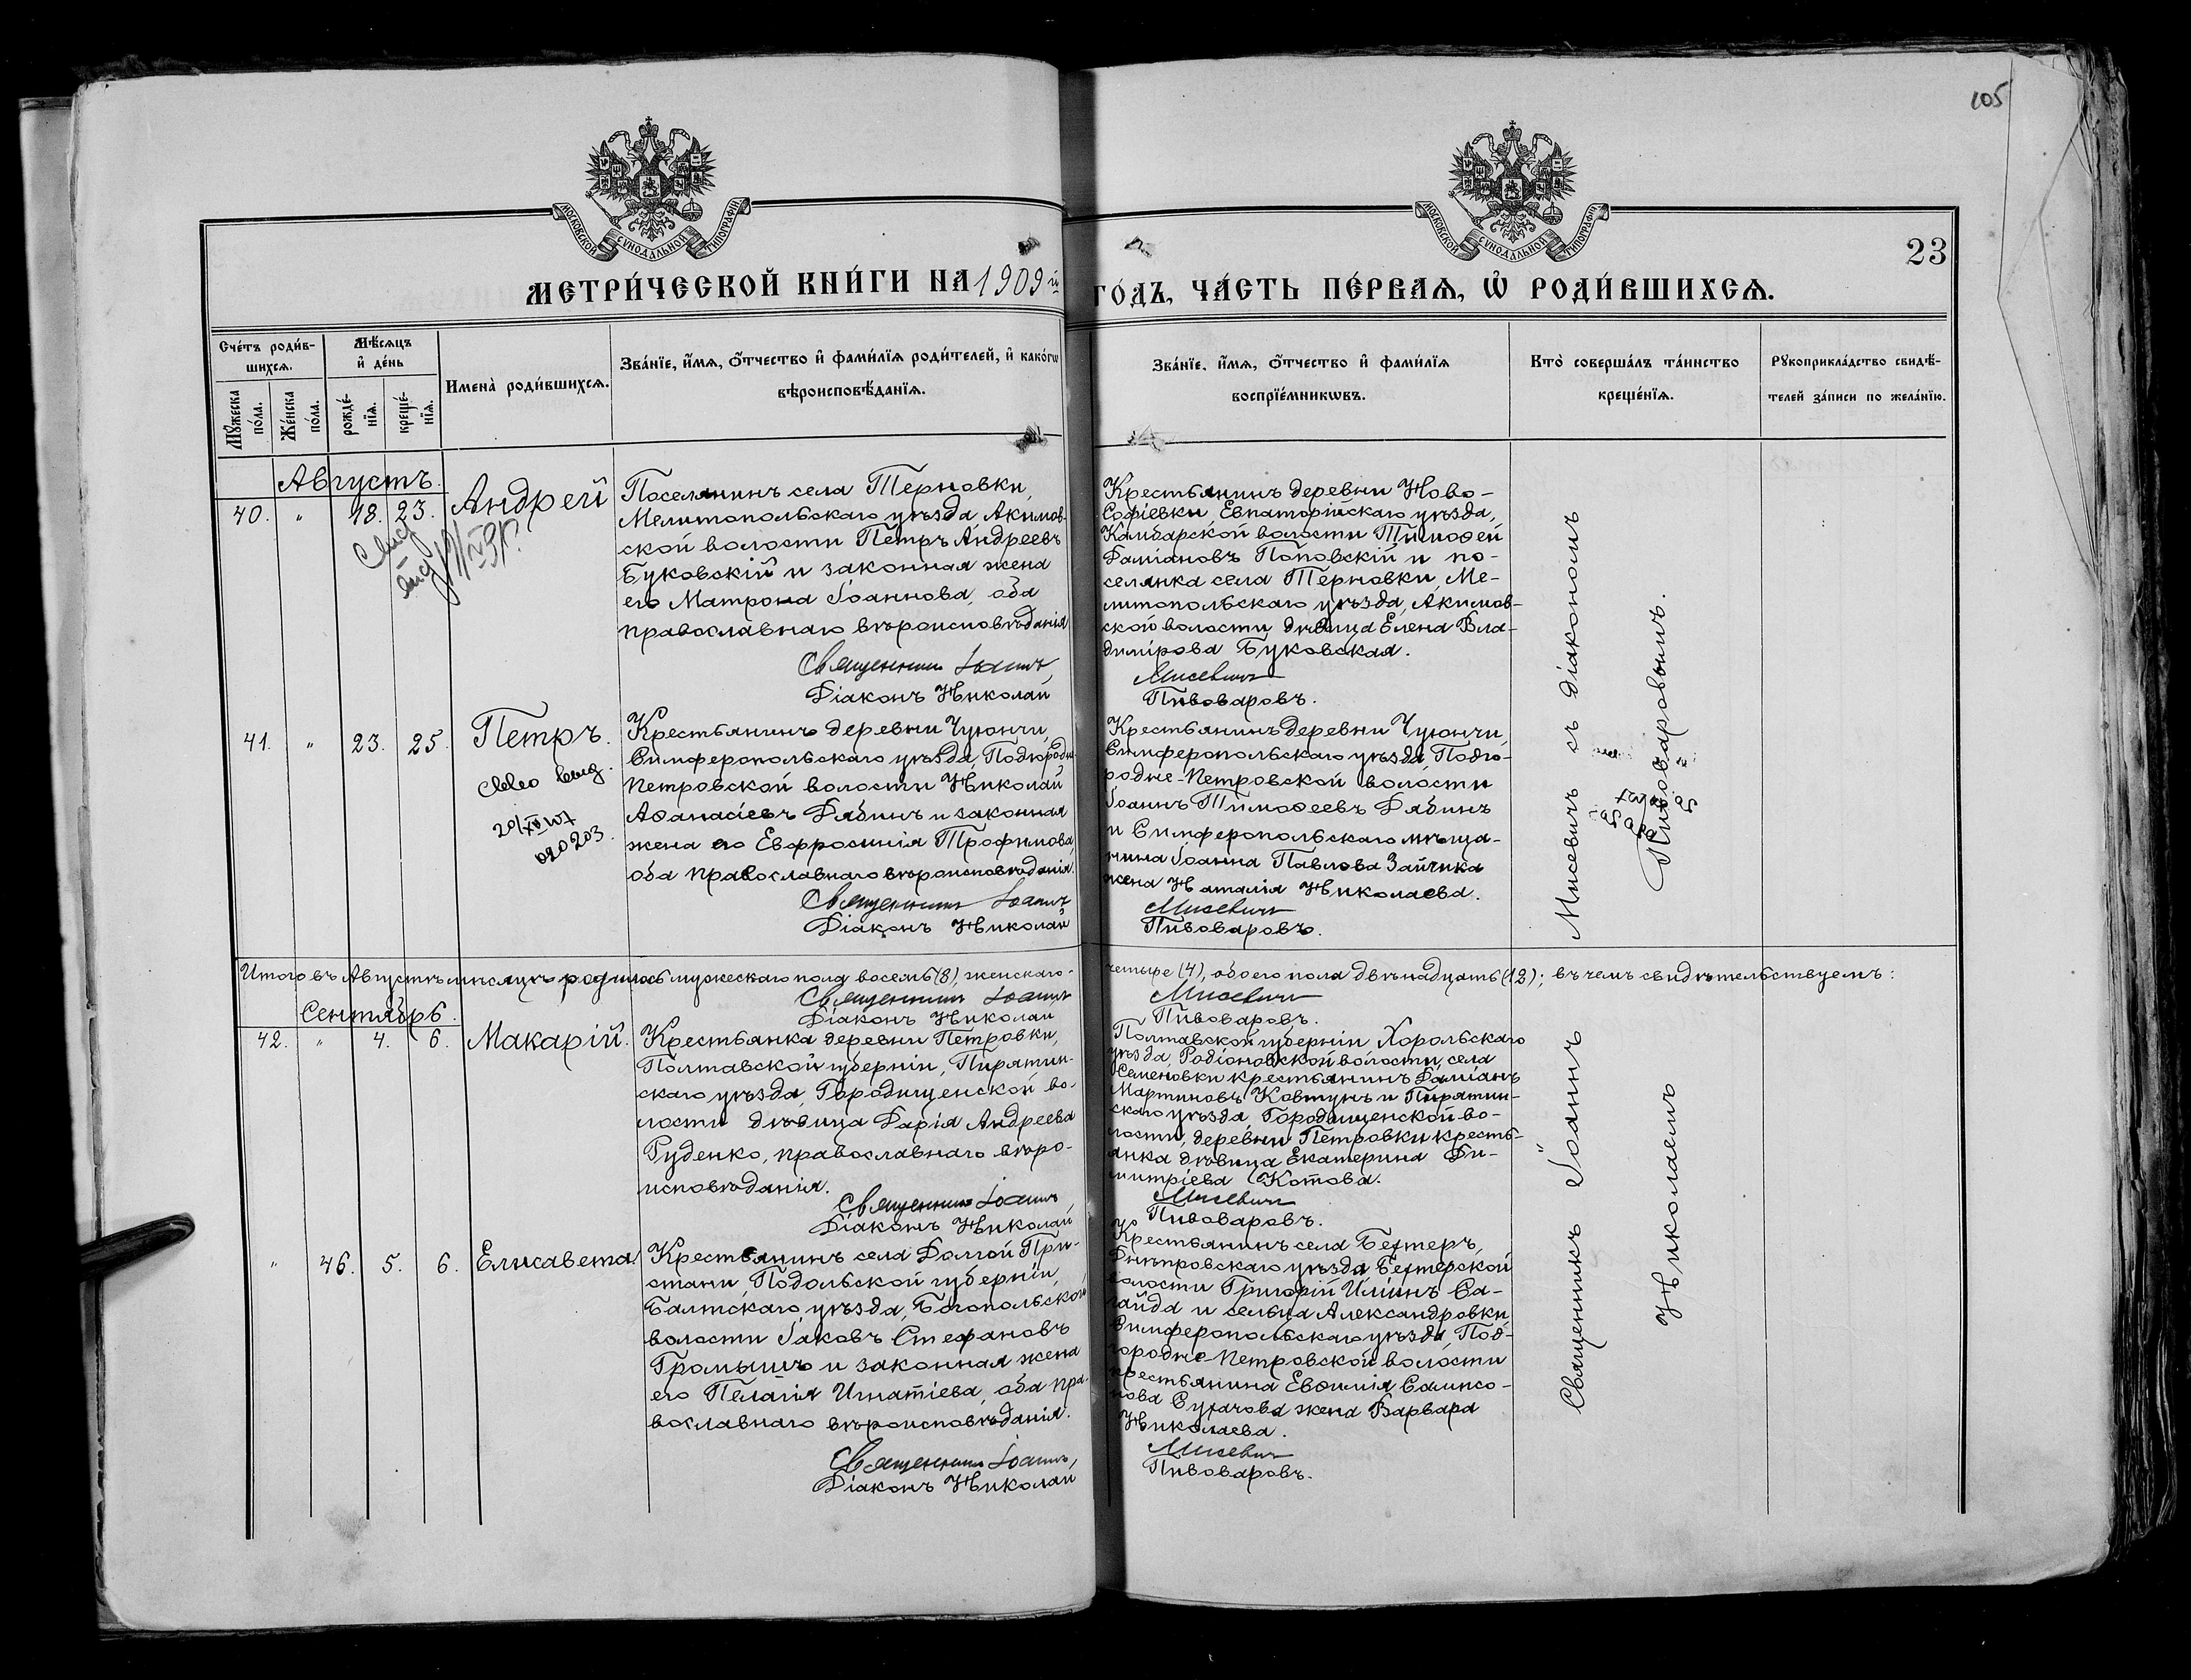 105
МОСКОВСКОЙ СУНОДАЛЬНОЙ ТИПОГРАФІИ
МОСКОВСКОЙ СУНОДАЛЬНОЙ ТИПОГРАФІИ
23
МЕТРИ́ЧЕСКОЙ КНИ́ГИ НА 1909й
ГО́ДЪ, ЧА́СТЬ ПЕ́РВАѦ, Ѽ РОДИ́ВШИХСѦ.
Сче́тъ роди́в-
шихсѧ.
Мꙋ́жеска по́ла.
Же́нска по́ла.
Мѣ́сѧцъ и҆ де́нь
рожде́-нїѧ.
креще́-нїѧ.
Имена̀ роди́вшихсѧ.
Зва́нїе, и҆́мѧ, ѻ҆́тчество и҆ фами́лїѧ роди́телей, и҆ како́гѡ
вѣроисповѣ́данїѧ.
Зва́нїе, и҆́мѧ, ѻ҆́тчество и҆ фами́лїѧ
воспрїе́мникѡвъ.
Кто̀ соверша́лъ та́инство
креще́нїѧ.
Рꙋкоприкла́дство свидѣ́-
телей за́писи по жела́нїю.
Августъ.
40. " 18. 23. Андрей
Поселянинъ села Терновки,
Мелитопольскаго уѣзда, Акимов-
ской волости Петръ Андреевъ
Буковскій и законная жена
его Матрона Іоаннова, оба
православнаго вѣроисповѣданія
Священникъ Іоаннъ
Діаконъ Николай
Крестьянинъ деревни Ново-
Софіевки Евпаторійскаго уѣзда,
Камбарской волости Тимоѳей
Даміановъ Поповскій и по-
селянка села Терновки, Ме-
литопольскаго уѣзда, Акимов-
ской волости дѣвица Елена Вла-
димірова Буковская.
Мисевичъ
Пивоваровъ.
41. " 23. 25. Петръ.
20/XII
020203
Крестьянинъ деревни Чуюнчи,
Симферопольскаго уѣзда, Подгородне-
Петровской волости Николай
Аѳанасіевъ Дябинъ и законная
жена его Евфросинія Трофимова,
оба православнаго вѣроисповѣданія.
Священникъ Іоаннъ
Діаконъ Николай
Крестьянинъ деревни Чуюнчи,
Симферопольскаго уѣзда, Подго-
родне-Петровской волости
Іоаннъ Тимоѳеевъ Дябинъ
и Симферопольскаго мѣща-
нина Іоанна Павлова Зайчика
жена Наталія Николаева.
Мисевичъ
Пивоваровъ.
Итого въ Августѣ мѣсяцѣ родилось мужескаго пола восемь (8), женскаго-
четыре (4), обоего пола двѣнадцать (12); въ чемъ свидѣтельствуемъ:
Священникъ Іоаннъ
Діаконъ Николай
Мисевичъ
Пивоваровъ.
Сентябрь.
42. " 4. 6. Макарій.
Крестьянка деревни Петровки,
Полтавской губерніи, Пирятин-
скаго уѣзда, Городищенской во-
лости дѣвица Дарія Андреева
Руденко, православнаго вѣро-
исповѣданія.
Священникъ Іоаннъ
Діаконъ Николай
Полтавской губерніи Хорольскаго
уѣзда, Родіоновской волости, села
Семеновки крестьянинъ Даміанъ
Мартиновъ Ковтунъ и Пирятин-
скаго уѣзда, Городищенской во-
лости, деревни Петровки кресть-
янка дѣвица Екатерина Ди-
митріева Котова.
Мисевичъ
Пивоваровъ.
" 46. 5. 6. Елисавета.
Крестьянинъ села Долгой При-
стани, Подольской губерніи,
Балтскаго уѣзда, Богопольской
волости Іаковъ Стефановъ
Громышъ и законная жена
его Пелагія Игнатіева, оба пра-
вославнаго вѣроисповѣданія.
Священникъ Іоаннъ
Діаконъ Николай
Крестьянинъ села Бехтеръ,
Днѣпровскаго уѣзда, Бехтерской
волости Григорій Иліинъ Са-
гайда и сельца Александровки,
Симферопольскаго уѣзда, Под-
городне-Петровской волости
крестьянина Евѳимія Сампсо-
нова Сухачова жена Варвара
Николаева.
Мисевичъ
Пивоваровъ.
Священникъ Іоаннъ Мисевичъ съ діакономъ
Николаемъ Пивоваровымъ.